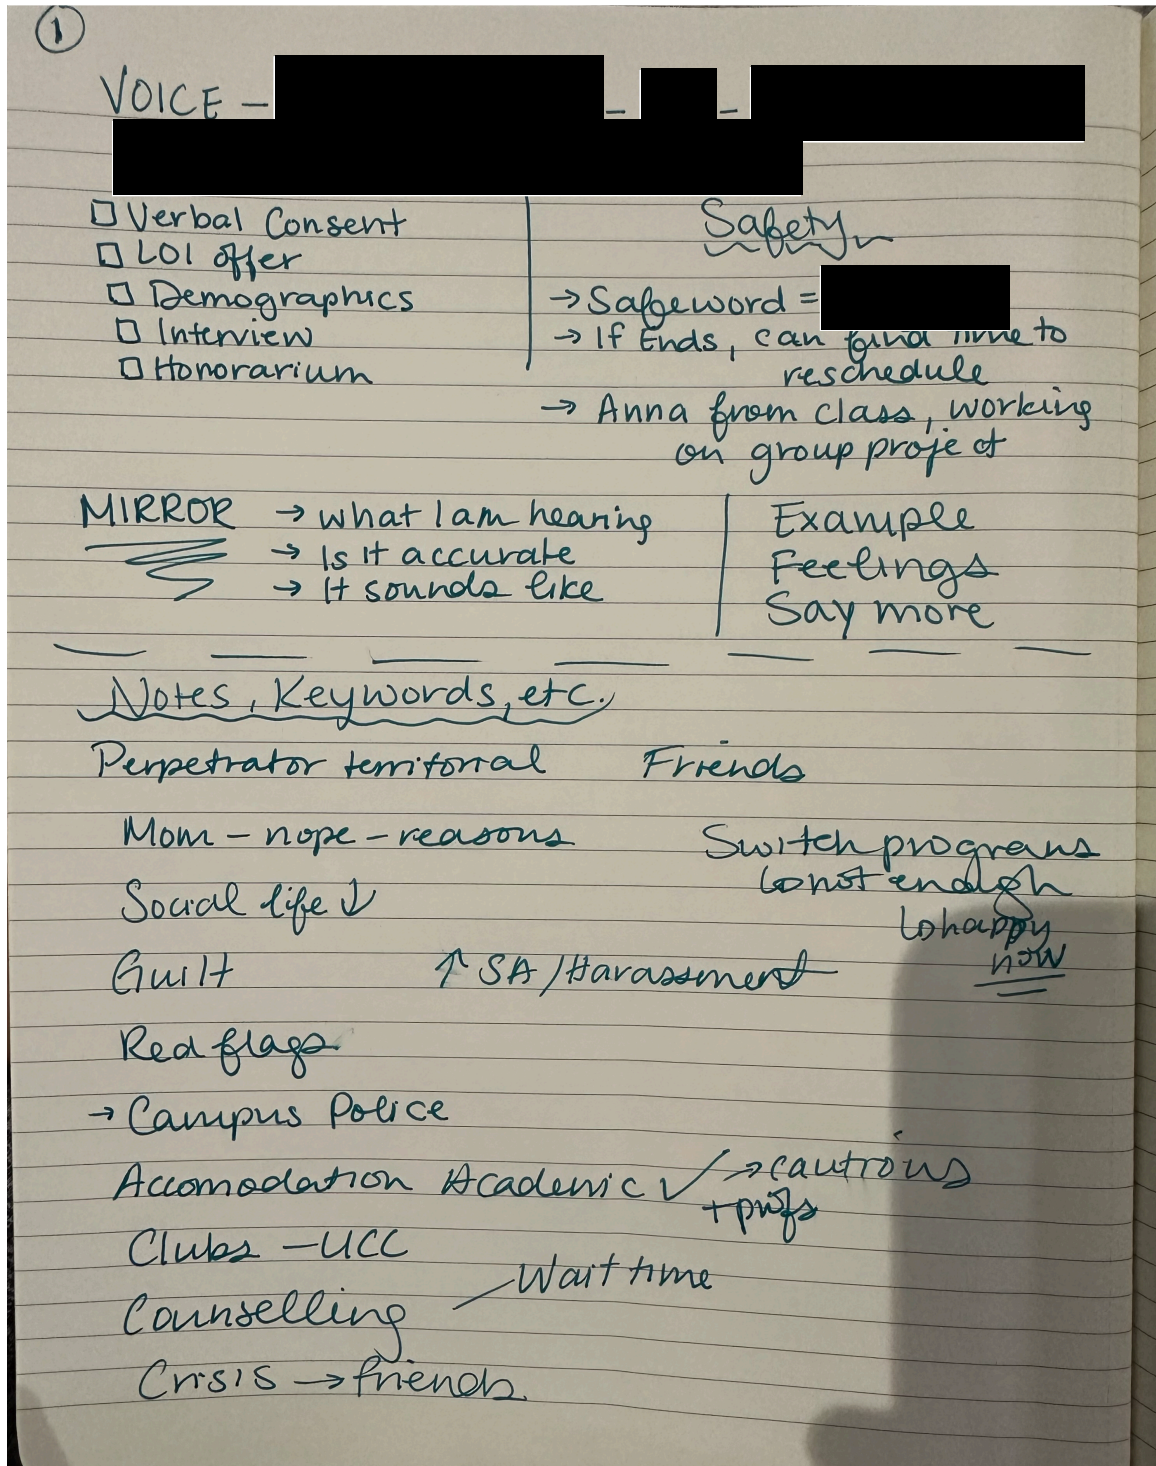 1
VOICE – – –
□ Verbal Consent
□ LOI offer
□ Demographics
□ Interview
□ Honorarium
Safety
→ Safeword =
→ If Ends, can find time to
reschedule
→ Anna from class, working
on group project
MIRROR → what I am hearing
→ Is it accurate
→ It sounds like
Example
Feelings
Say more
Notes, Keywords, etc.
Perpetrator territorial Friends
Mom – nope – reasons
Switch programs
↳ not enough
↳ happy
now
Social life ↓
Guilt ↑ SA / Harassment
Red flags
→ Campus Police
Accomodation Academic ✓ → cautious
+ profs
Clubs – UCC
Counselling – Wait time
Crisis → friends